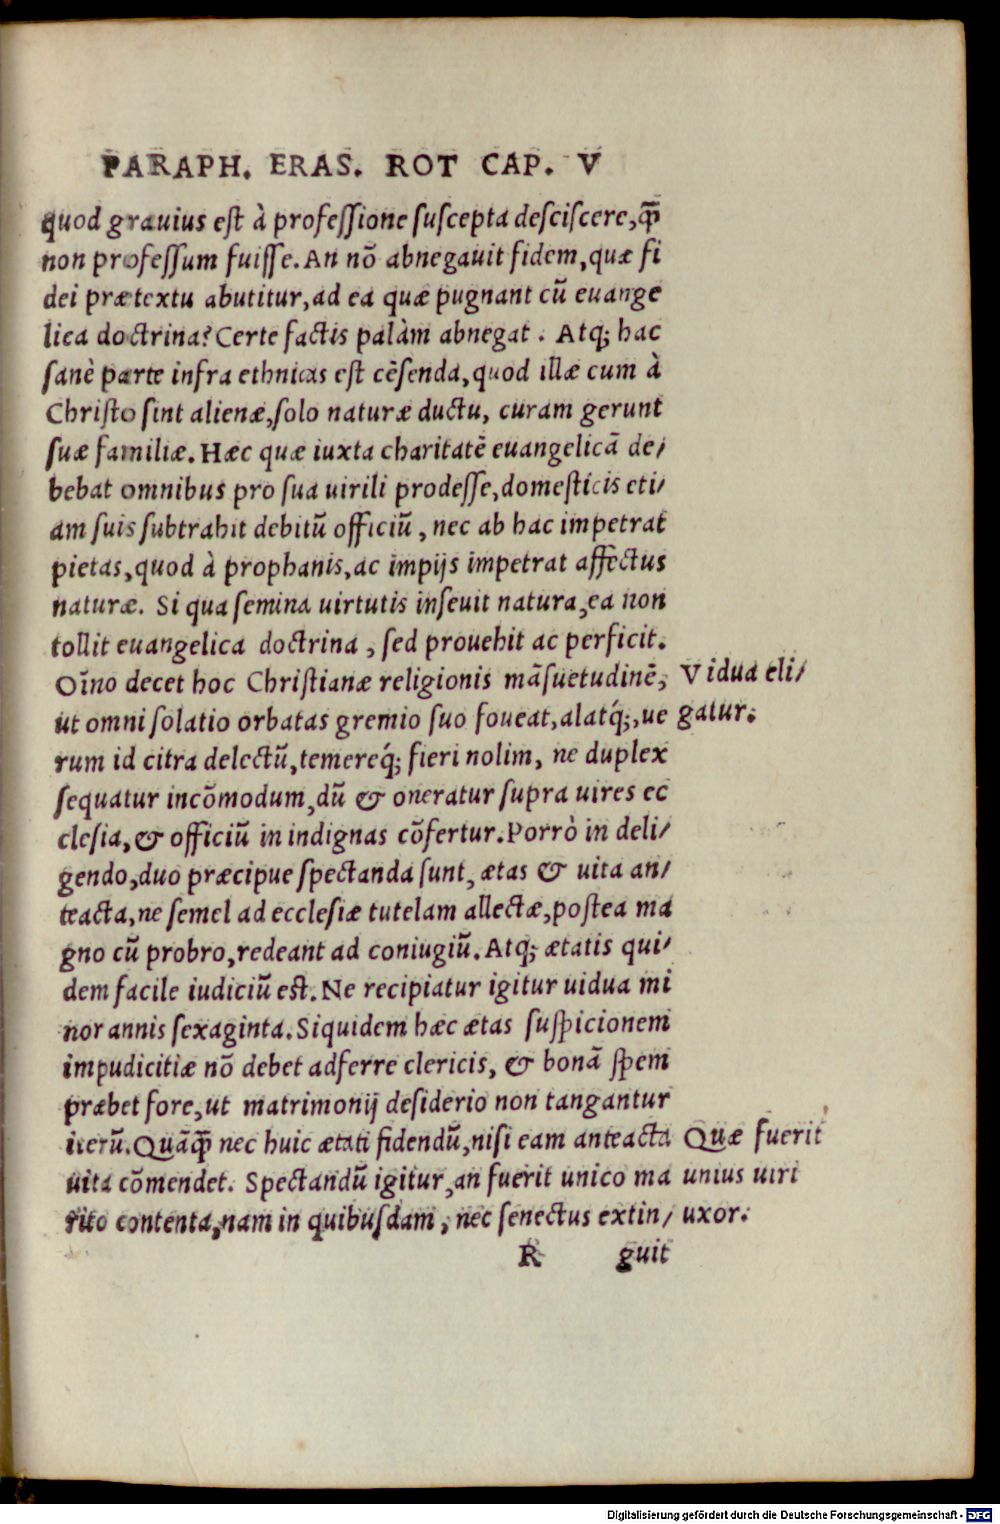 PARAPH. ERAS. ROT CAP. V
quod grauius est à professione suscepta desciscere, q̃
non professum fuisse. An nõ abnegauit fidem, quæ fi
dei prætextu abutitur, ad ea quæ pugnant cũ euange
lica doctrina? Certe factis palàm abnegat. Atq; hac
sanè parte infra ethnicas est cẽsenda, quod illæ cum à
Christo sint alienæ, solo naturæ ductu, curam gerunt
suæ familiæ. Hæc quæ iuxta charitatẽ euangelicã de/
bebat omnibus pro sua uirili prodesse, domesticis eti/
am suis subtrahit debitũ officiũ, nec ab hac impetrat
pietas, quod à prophanis, ac impijs impetrat affectus
naturæ. Si qua semina uirtutis inseuit natura, ea non
tollit euangelica doctrina, sed prouehit ac perficit.
Oĩno decet hoc Christianæ religionis mãsuetudinẽ,
ut omni solatio orbatas gremio suo foueat, alatq́;, ue
rum id citra delectũ, temereq́; fieri nolim, ne duplex
sequatur incõmodum, dũ & oneratur supra uires ec
clesia, & officiũ in indignas cõfertur. Porrò in deli/
gendo, duo præcipue spectanda sunt, ætas & uita an/
teacta, ne semel ad ecclesiæ tutelam allectæ, postea ma
gno cũ probro, redeant ad coniugiũ. Atq; ætatis qui/
dem facile iudiciũ est. Ne recipiatur igitur uidua mi
nor annis sexaginta. Siquidem hæc ætas suspicionem
impudicitiæ nõ debet adferre clericis, & bonã spem
præbet fore, ut matrimonij desiderio non tangantur
iterũ. Quãq̃ nec huic ætati fidendũ, nisi eam anteacta
uita cõmendet. Spectandũ igitur, an fuerit unico ma
rito contenta, nam in quibusdam, nec senectus extin/
R guit
Vidua eli/
gatur.
Quæ fuerit
unius uiri
uxor.
Digitalisierung gefördert durch die Deutsche Forschungsgemeinschaft - DFG